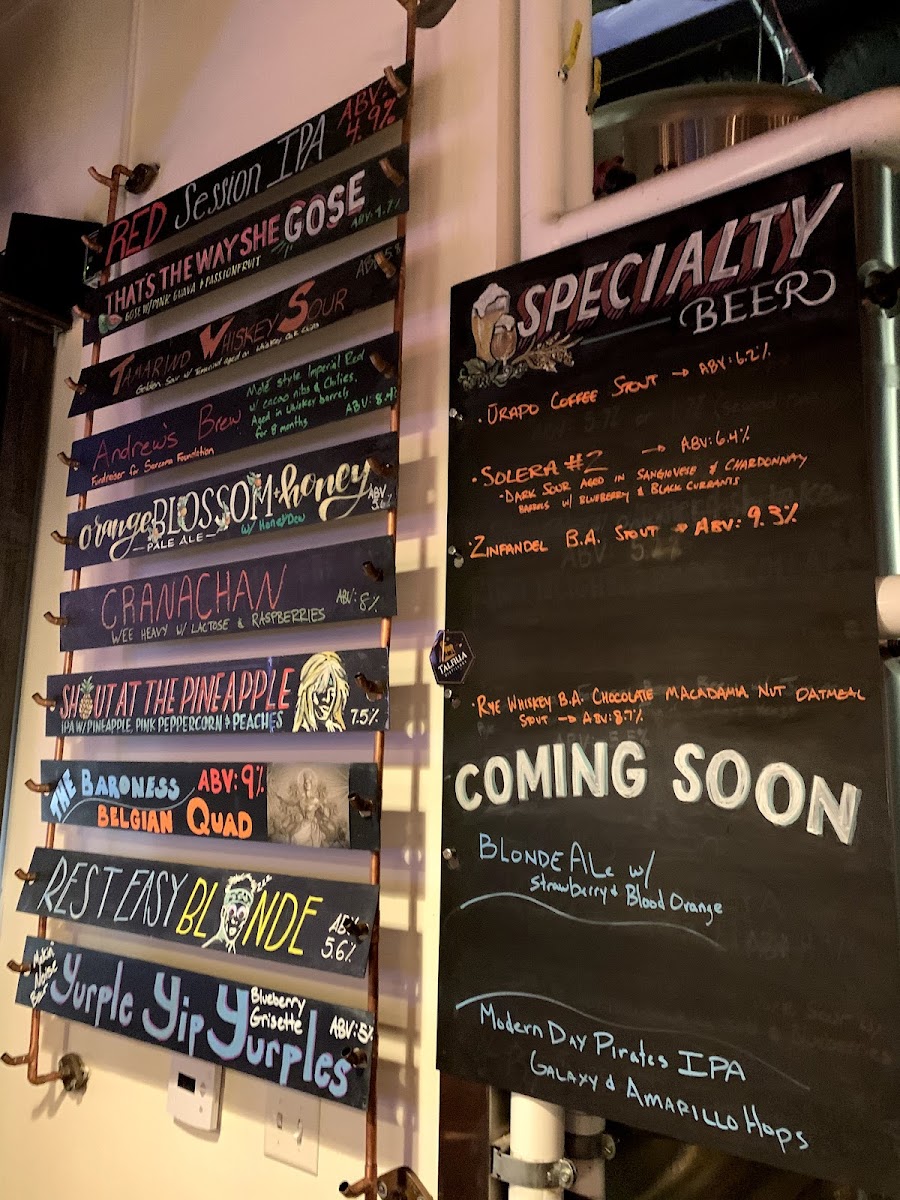 RED Session IPA ABV: 4.9%
THAT'S THE WAY SHE GOSE
GOSE W/ PINK GUAVA & PASSIONFRUIT ABV: 4.7%
TAMARIND WHISKEY SOUR
Golden Sour w/ Tamarind aged on Whiskey Oak Chips
Andrew's Brew
Fundraiser for Sarcoma Foundation
Molé style Imperial Red
w/ cacao nibs & Chilies,
Aged in whiskey barrels
for 8 months ABV: 8.4%
orange BLOSSOM + honey
PALE ALE w/ HoneyDew
ABV 5.6%
CRANACHAN ABV: 8%
WEE HEAVY W/ LACTOSE & RASPBERRIES
SHOUT AT THE PINEAPPLE
IPA W/ PINEAPPLE, PINK PEPPERCORN & PEACHES 7.5%
THE BARONESS ABV: 9%
BELGIAN QUAD
REST EASY BLONDE
5.6%
Makin' Noise Beer
Yurple Yip Yurples
Blueberry
Grisette
ABV: 5%
SPECIALTY
BEER
· URAPO COFFEE STOUT → ABV: 6.2%
· SOLERA #2 → ABV: 6.4%
· DARK SOUR AGED IN SANGIOVESE & CHARDONNAY
BARRELS W/ BLUEBERRY & BLACK CURRANTS
· ZINFANDEL B.A. STOUT → ABV: 9.3%
· RYE WHISKEY B.A. CHOCOLATE MACADAMIA NUT OATMEAL
STOUT → ABV: 8.7%
COMING SOON
BLONDE ALE w/
Strawberry & Blood Orange
Modern Day Pirates IPA
GALAXY & AMARILLO HOPS